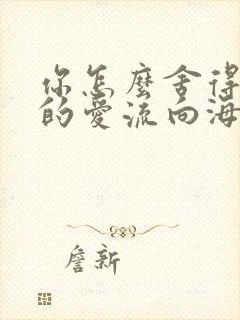 你怎麼舍得
的愛流向海
詹新